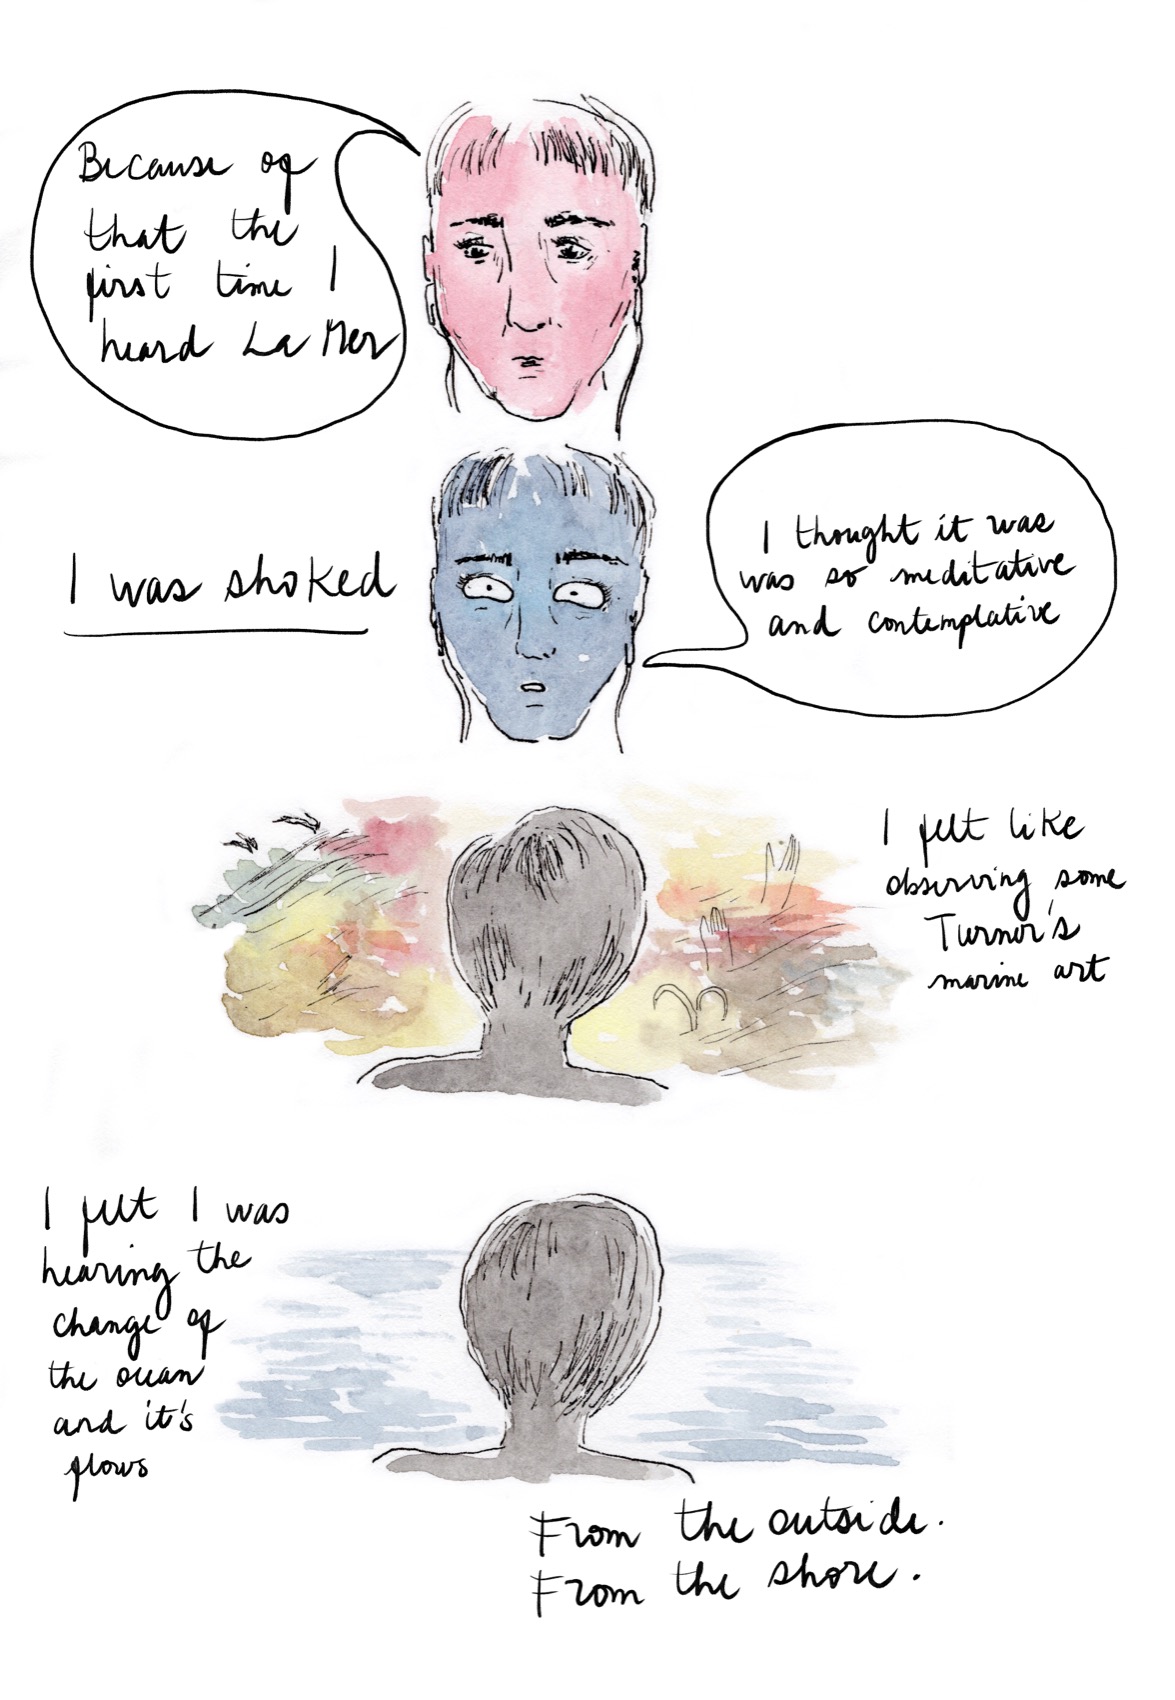 Because of
that the
first time I
heard La Mer
I was shoked
I thought it was
was so meditative
and contemplative
I felt like
observing some
Turner's
marine art
I felt I was
hearing the
change of
the ocean
and it's
flows
From the outside.
From the shore.